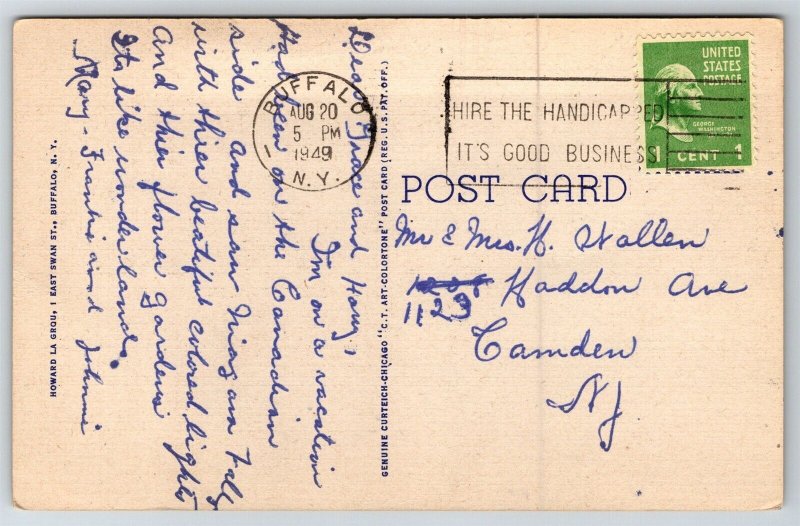 Dear Grace and Harry,
I'm on a vacation
Had been on the Canadian
side and saw Niagara Falls
with thier beautiful colored lights
And thier flower gardens
Its like wonderland.
Mary - Frankie and Johnnie
HOWARD LA GROU, 1 EAST SWAN ST., BUFFALO, N. Y.
GENUINE CURTEICH-CHICAGO "C.T. ART-COLORTONE" POST CARD (REG. U.S. PAT. OFF.)
BUFFALO
AUG 20
5 PM
1949
N.Y.
HIRE THE HANDICAPPED
IT'S GOOD BUSINESS!
UNITED
STATES
POSTAGE
GEORGE
WASHINGTON
CENT 1
POST CARD
Mr & Mrs. H. Wallen
Haddon Ave
1123
Camden
NJ